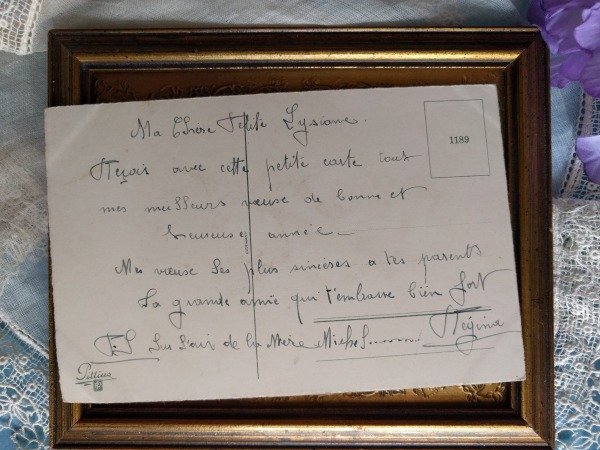 Ma Chère Petite Lysiane.
1189
Reçois avec cette petite carte tout
mes meilleurs vœuse de bonne et
heureuse année
Mes vœuse les plus sincères a tes parents
La grande amie qui t'embrasse bien fort
Regina
P.S de la Mère Michel